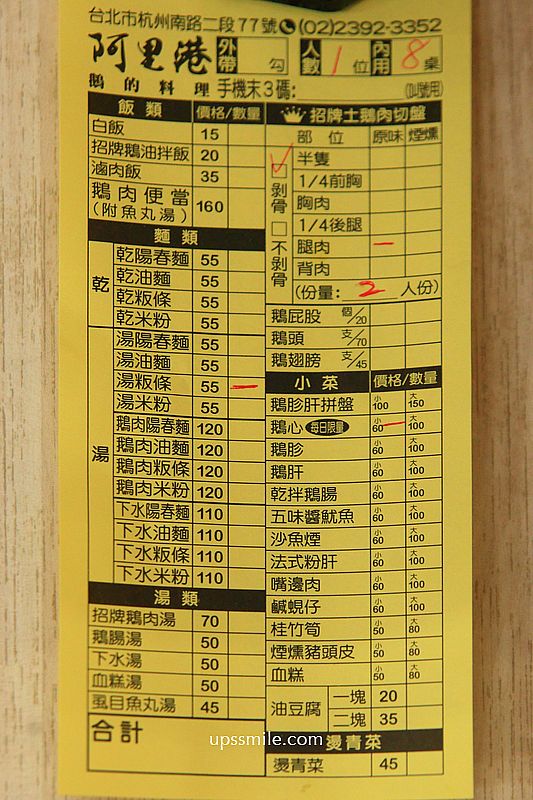 台北市杭州南路二段77號 (02)2392-3352
阿里港 外帶 勾 人數 1 位 內用 8 桌
鵝的料理 手機末3碼: (叫號用)
飯類 價格/數量
白飯 15
招牌鵝油拌飯 20
滷肉飯 35
鵝肉便當 160
(附魚丸湯)
麵類
乾
乾陽春麵 55
乾油麵 55
乾粄條 55
乾米粉 55
湯
湯陽春麵 55
湯油麵 55
湯粄條 55 一
湯米粉 55
鵝肉陽春麵 120
鵝肉油麵 120
鵝肉粄條 120
鵝肉米粉 120
下水陽春麵 110
下水油麵 110
下水粄條 110
下水米粉 110
湯類
招牌鵝肉湯 70
鵝腸湯 50
下水湯 50
血糕湯 50
虱目魚丸湯 45
合計
招牌土鵝肉切盤
部位 原味 煙燻
✓ □ 剝骨
□ 不剝骨
半隻
1/4前胸
胸肉
1/4後腿
腿肉 一
背肉
(份量: 2 人份)
鵝屁股 個/20
鵝頭 支/70
鵝翅膀 支/45
小菜 價格/數量
鵝胗肝拼盤 小100 大150
鵝心 每日限量 小60 一 大100
鵝胗 小60 大100
鵝肝 小60 大100
乾拌鵝腸 小60 大100
五味醬魷魚 小60 大100
沙魚煙 小60 大100
法式粉肝 小60 大100
嘴邊肉 小60 大100
鹹蜆仔 小60 大100
桂竹筍 小50 大80
煙燻豬頭皮 小50 大80
血糕 小50 大80
油豆腐 一塊 20
二塊 35
燙青菜
燙青菜 45
upssmile.com